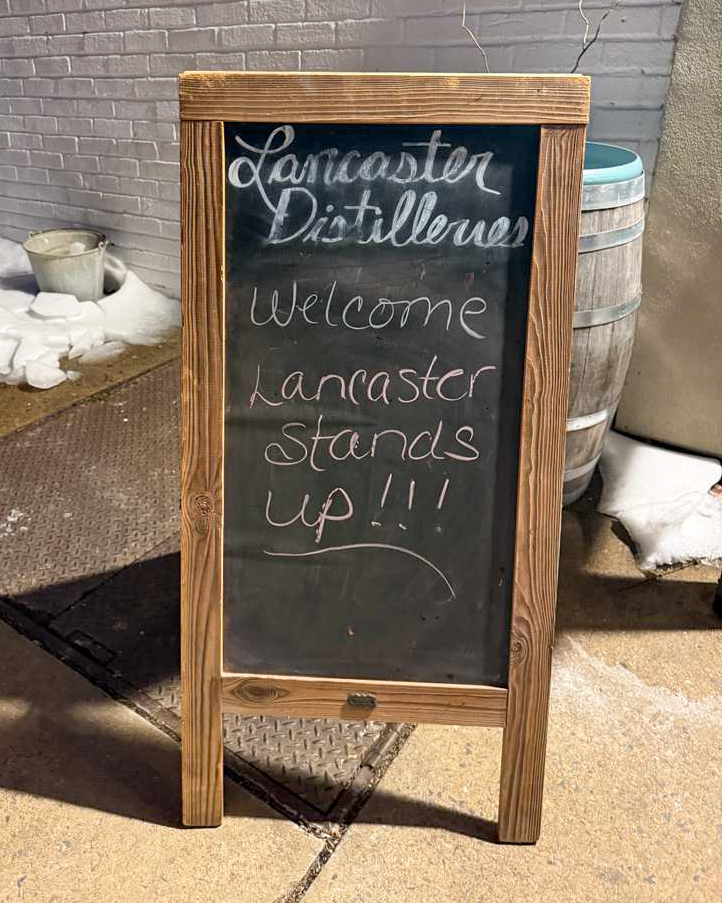 Lancaster
Distilleries
Welcome
Lancaster
Stands
up!!!